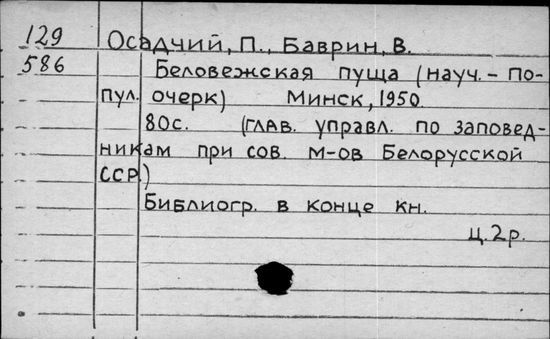 129 Осадчий, П., Баврин, В.
586 Беловежская пуща (науч.- по-
пул. очерк) Минск, 1950.
80с. (глав. управл. по заповед-
никам при сов. м-ов Белорусской
ССР.)
Библиогр. в конце кн.
ц. 2р.